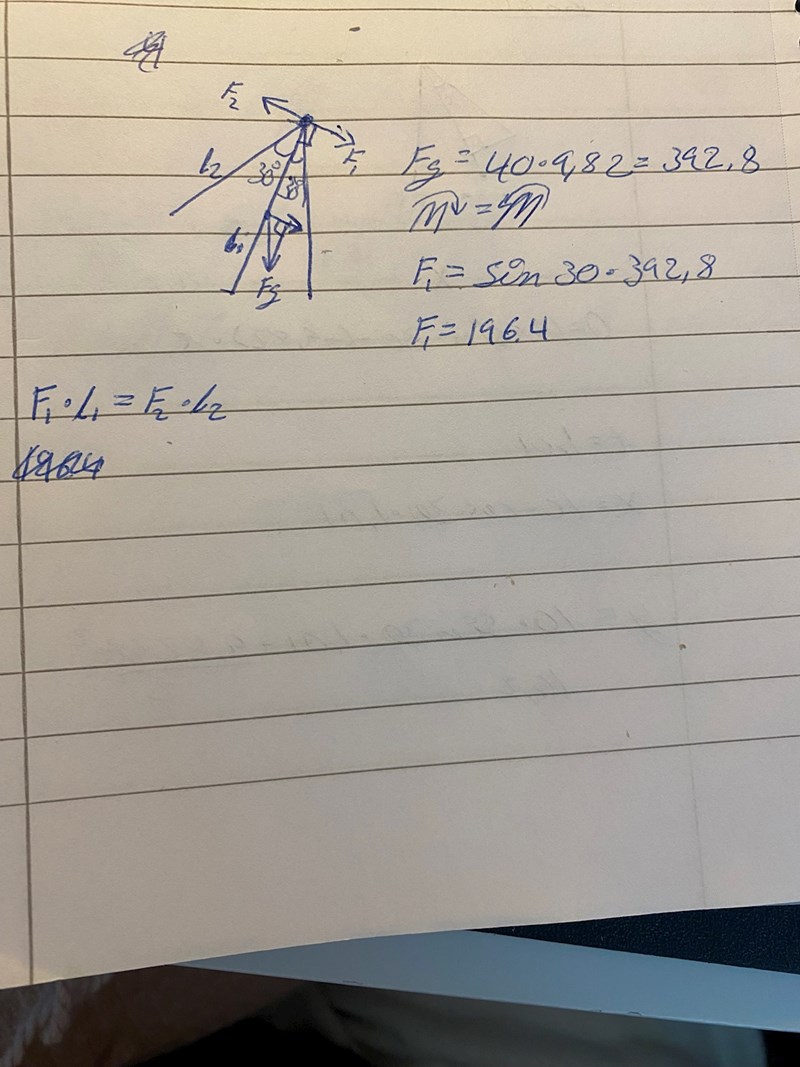 F₂
F₁
l₂
30°
30°
l₁
Fg
Fg = 40·9,82 = 392,8
F₁ = sin 30 · 392,8
F₁ = 196,4
F₁·l₁ = F₂·l₂